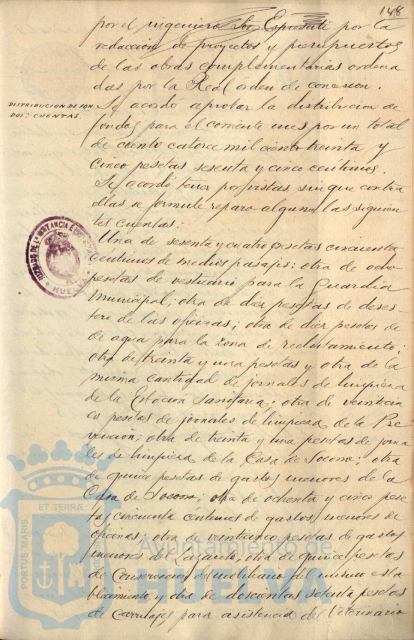 148
por el ingeniero Sor Esposuti por la
redacción de proyectos y presupuestos
de las obras complementarias ordena
das por la Real orden de concesion.
DISTRIBUCION DE FON
DOS: CUENTAS.
Se acordó aprobar la distribucion de
fondos para el corriente mes por un total
de ciento catorce mil ciento treinta y
cinco pesetas sesenta y cinco centimos.
Se acordó tener por vistas sin que contra
ellas se formule reparo alguno las siguien
tes cuentas:
Una de sesenta y cuatro pesetas cincuenta
centimos de medios pasajes; otra de ocho
pesetas de vestuario para la Guardia
Municipal; otra de diez pesetas de deses-
tero de las oficinas; otra de diez pesetas de
de agua para la zona de reclutamiento;
otra de treinta y una pesetas y otra de la
misma cantidad de jornales de limpieza
de la Estacion Sanitaria; otra de veintici
co pesetas de jornales de limpieza de la Pre
vencion; otra de treinta y una pesetas de jorna
les de limpieza de la Casa de Socorro; otra
de quince pesetas de gastos menores de la
Casa de Socorro; otra de ochenta y cinco pese
tas cincuenta centimos de gastos menores de
oficinas; otra de veinticinco pesetas de gastos
menores del otra de quince pesetas
de conservacion del mobiliario del mismo esta
blecimiento, y otra de doscientas setenta pesetas
de carruajes para asistencia del Veterinario
HUELVA
PORTUS MARIS
ET TERRÆ
Ayuntamiento de